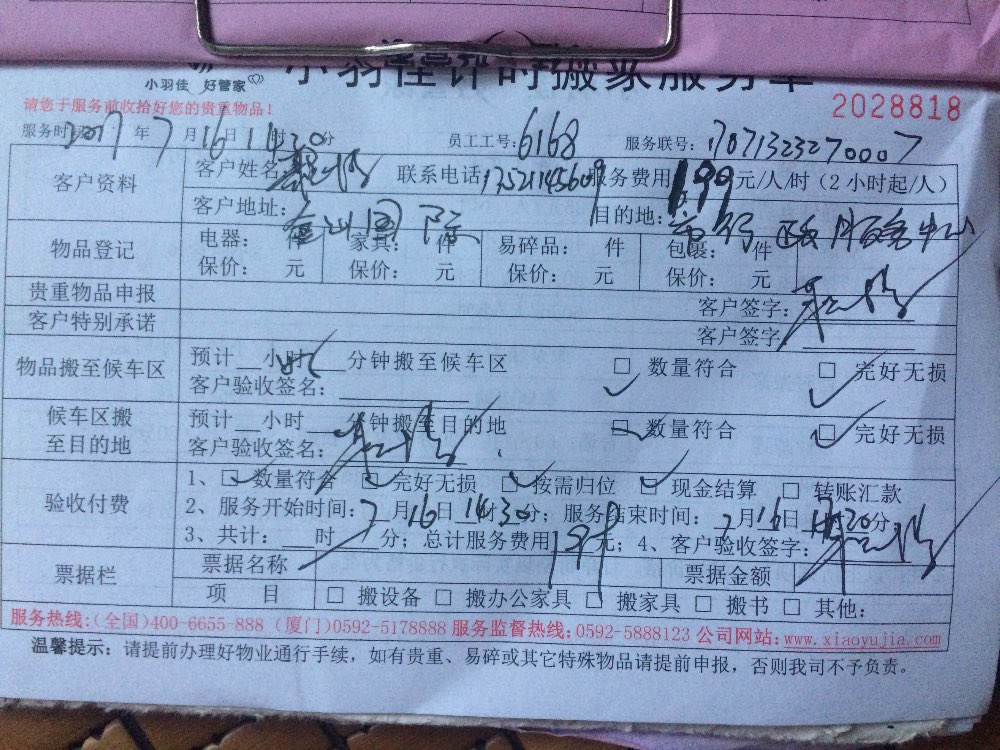 小羽佳计时搬家服务单
小羽佳 好管家
2028818
请您于服务前收拾好您的贵重物品！
服务时间 2017年7月16日14时30分 员工工号:6168 服务联号:1707132327
客户资料 客户姓名: 联系电话 服务费用199元/人/时（2小时起/人）
客户地址:金山国际 目的地:市行政服务中心
物品登记 电器: 件 家具: 件 易碎品: 件 包裹: 件
保价: 元 保价: 元 保价: 元 保价: 元
贵重物品申报 客户签字:
客户特别承诺 客户签字:
物品搬至候车区 预计__小时 分钟搬至候车区 □ 数量符合 □ 完好无损
客户验收签名:
候车区搬至目的地 预计__小时 分钟搬至目的地 □ 数量符合 □ 完好无损
客户验收签名:
验收付费 1、□ 数量符合 □ 完好无损 □ 按需归位 □ 现金结算 □ 转账汇款
2、服务开始时间:7月16日14时30分；服务结束时间:7月16日 时20分
3、共计:__时__分；总计服务费用199元；4、客户验收签字:
票据栏 票据名称 票据金额
项 目 □ 搬设备 □ 搬办公家具 □ 搬家具 □ 搬书 □ 其他:
服务热线:(全国)400-6655-888 (厦门)0592-5178888 服务监督热线:0592-5888123 公司网站:www.xiaoyujia.com
温馨提示: 请提前办理好物业通行手续，如有贵重、易碎或其它特殊物品请提前申报，否则我司不予负责。